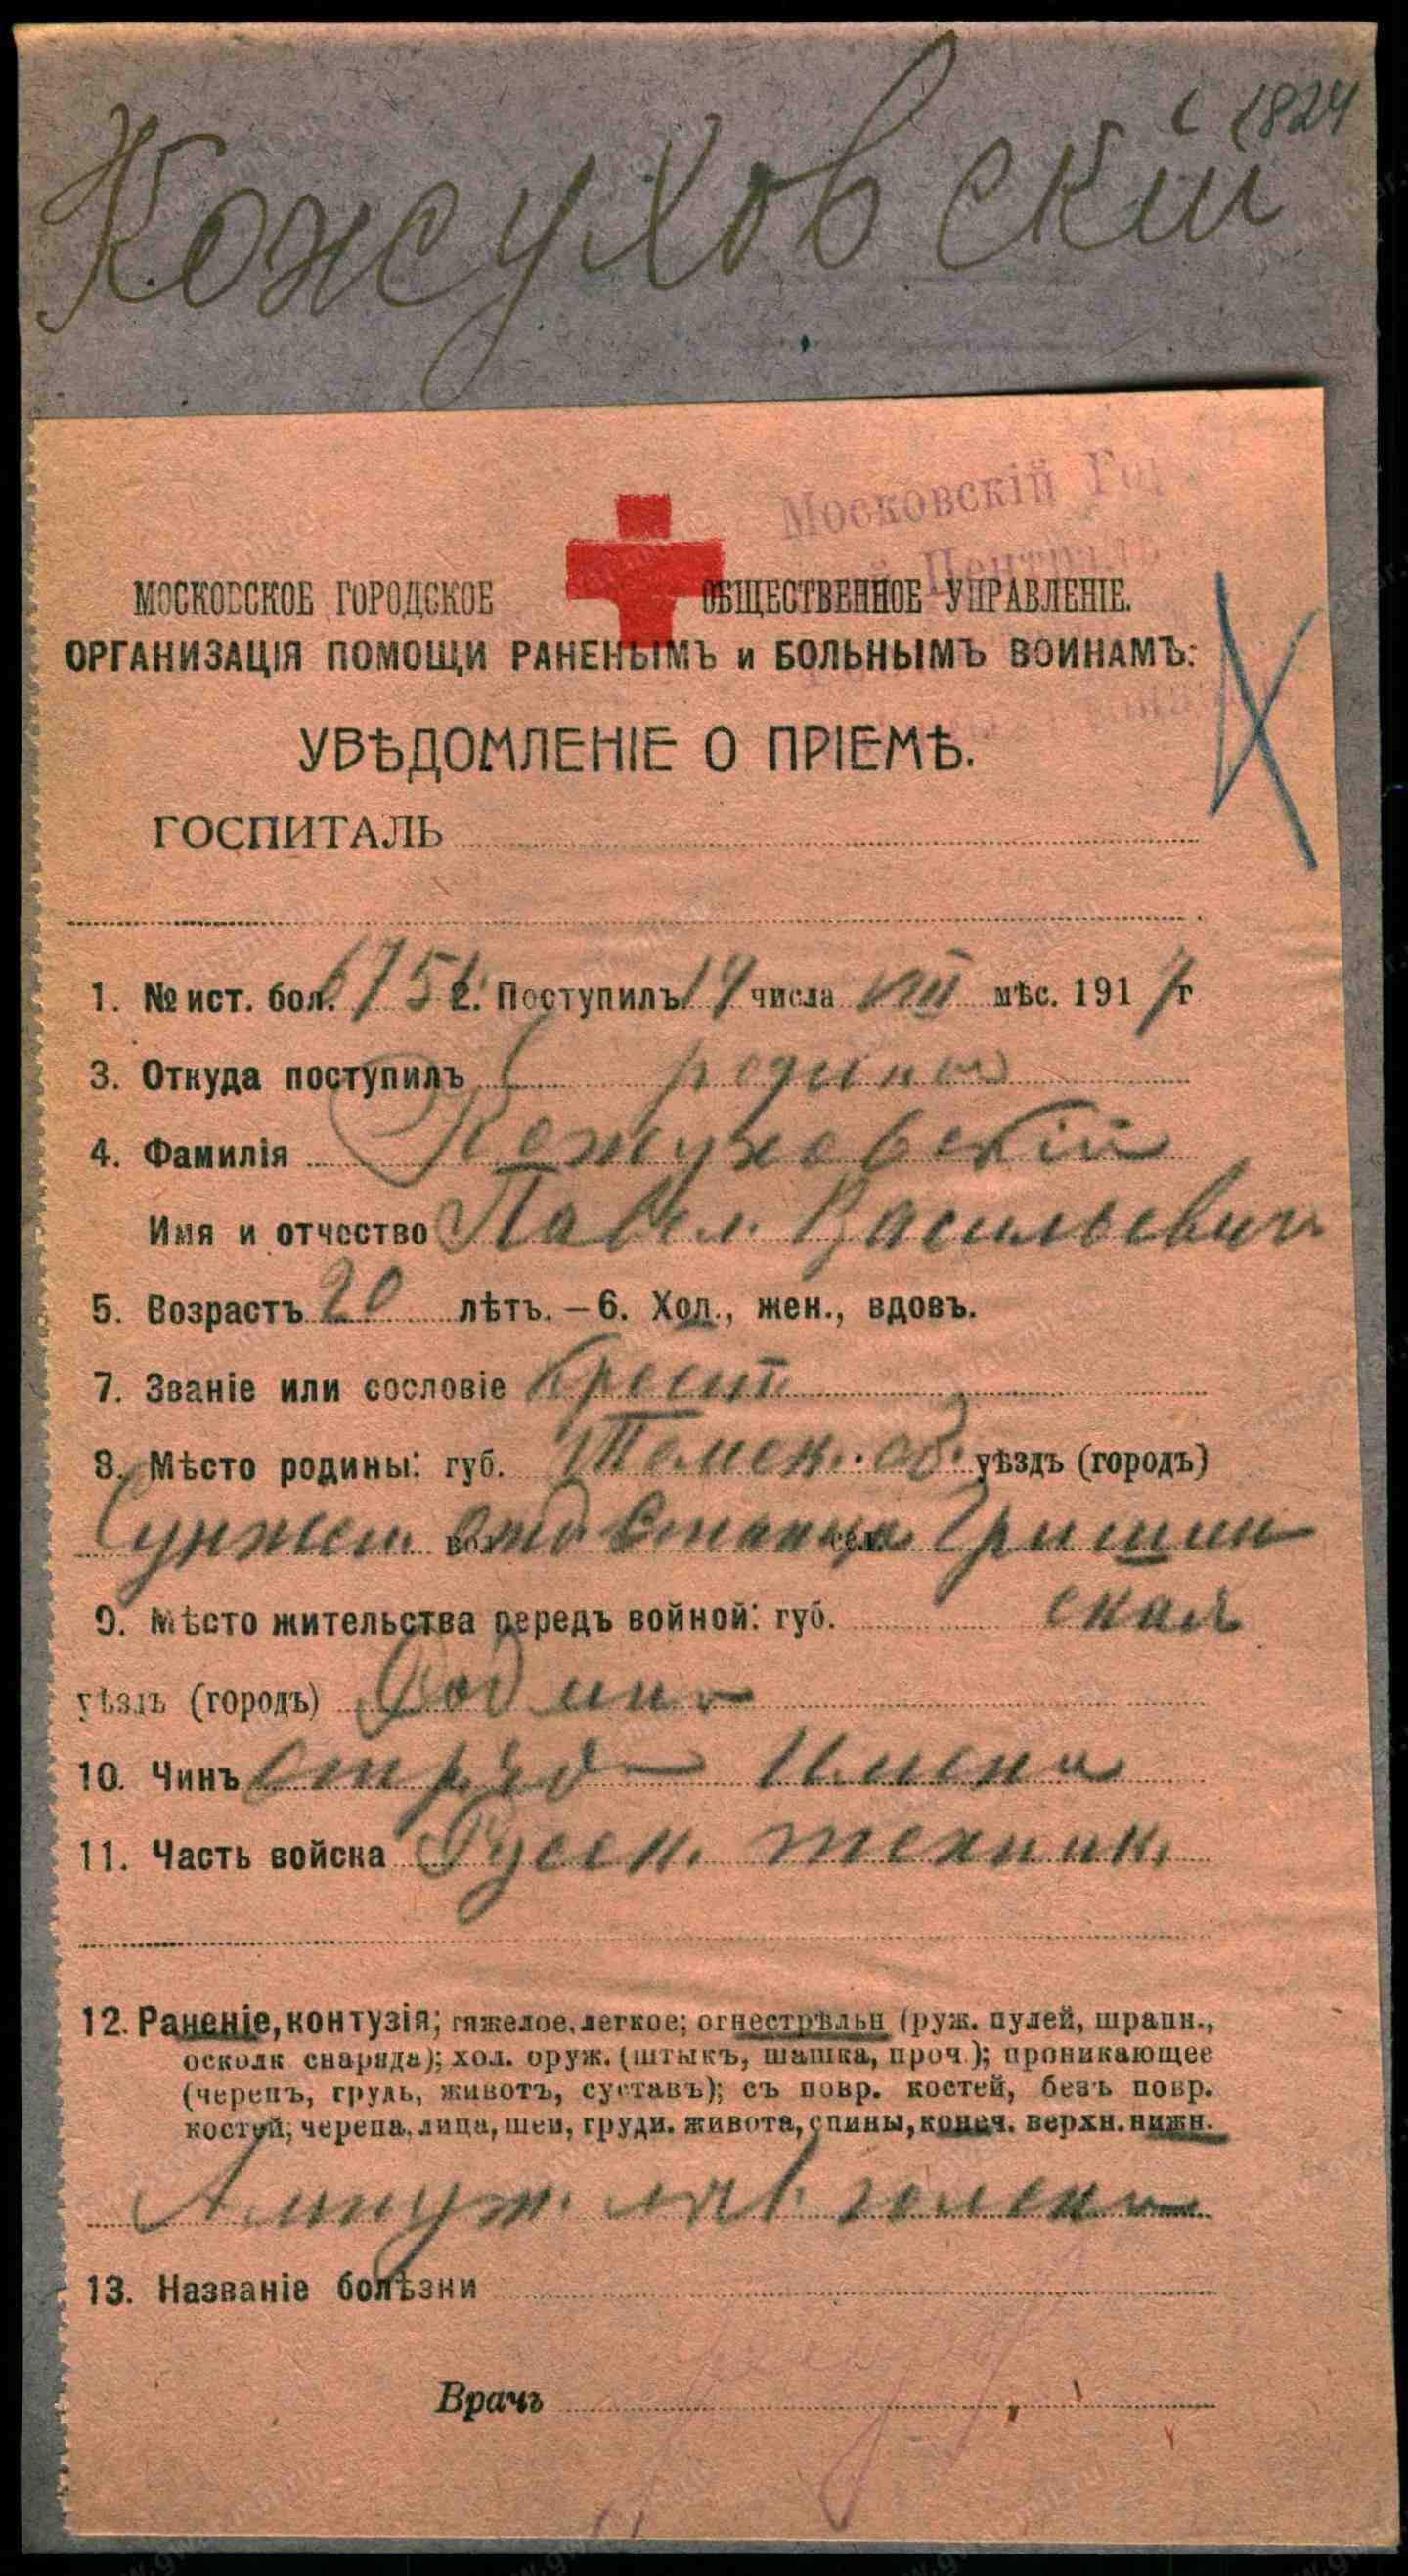 1824
Кожуховскій
Московскій Гор
Централь
МОСКОВСКОЕ ГОРОДСКОЕ ОБЩЕСТВЕННОЕ УПРАВЛЕНІЕ.
ОРГАНИЗАЦІЯ ПОМОЩИ РАНЕНЫМЪ и БОЛЬНЫМЪ ВОИНАМЪ:
УВѢДОМЛЕНІЕ О ПРІЕМѢ.
ГОСПИТАЛЬ
1. № ист. бол. 675 2. Поступилъ 14 числа VIII мѣс. 1917 г
3. Откуда поступилъ С родины
4. Фамилія Кожуховскій
Имя и отчество Павел Васильевич
5. Возрастъ 20 лѣтъ. – 6. Хол., жен., вдовъ.
7. Званіе или сословіе Крест
8. Мѣсто родины: губ. обл. уѣздъ (городъ)
Сунжен. отд Станица
9. Мѣсто жительства передъ войной: губ. ская
уѣздъ (городъ)
10. Чинъ
11. Часть войска
12. Раненіе, контузія; тяжелое, легкое; огнестрѣльн (руж. пулей, шрапн.,
осколк снаряда); хол. оруж. (штыкъ, шашка, проч.); проникающее
(черепъ, грудь, животъ, суставъ); съ повр. костей, безъ повр.
костей; черепа, лица, шеи, груди. живота, спины, конеч. верхн. нижн.
Ампут. лев. голени
13. Названіе болѣзни
Врачъ